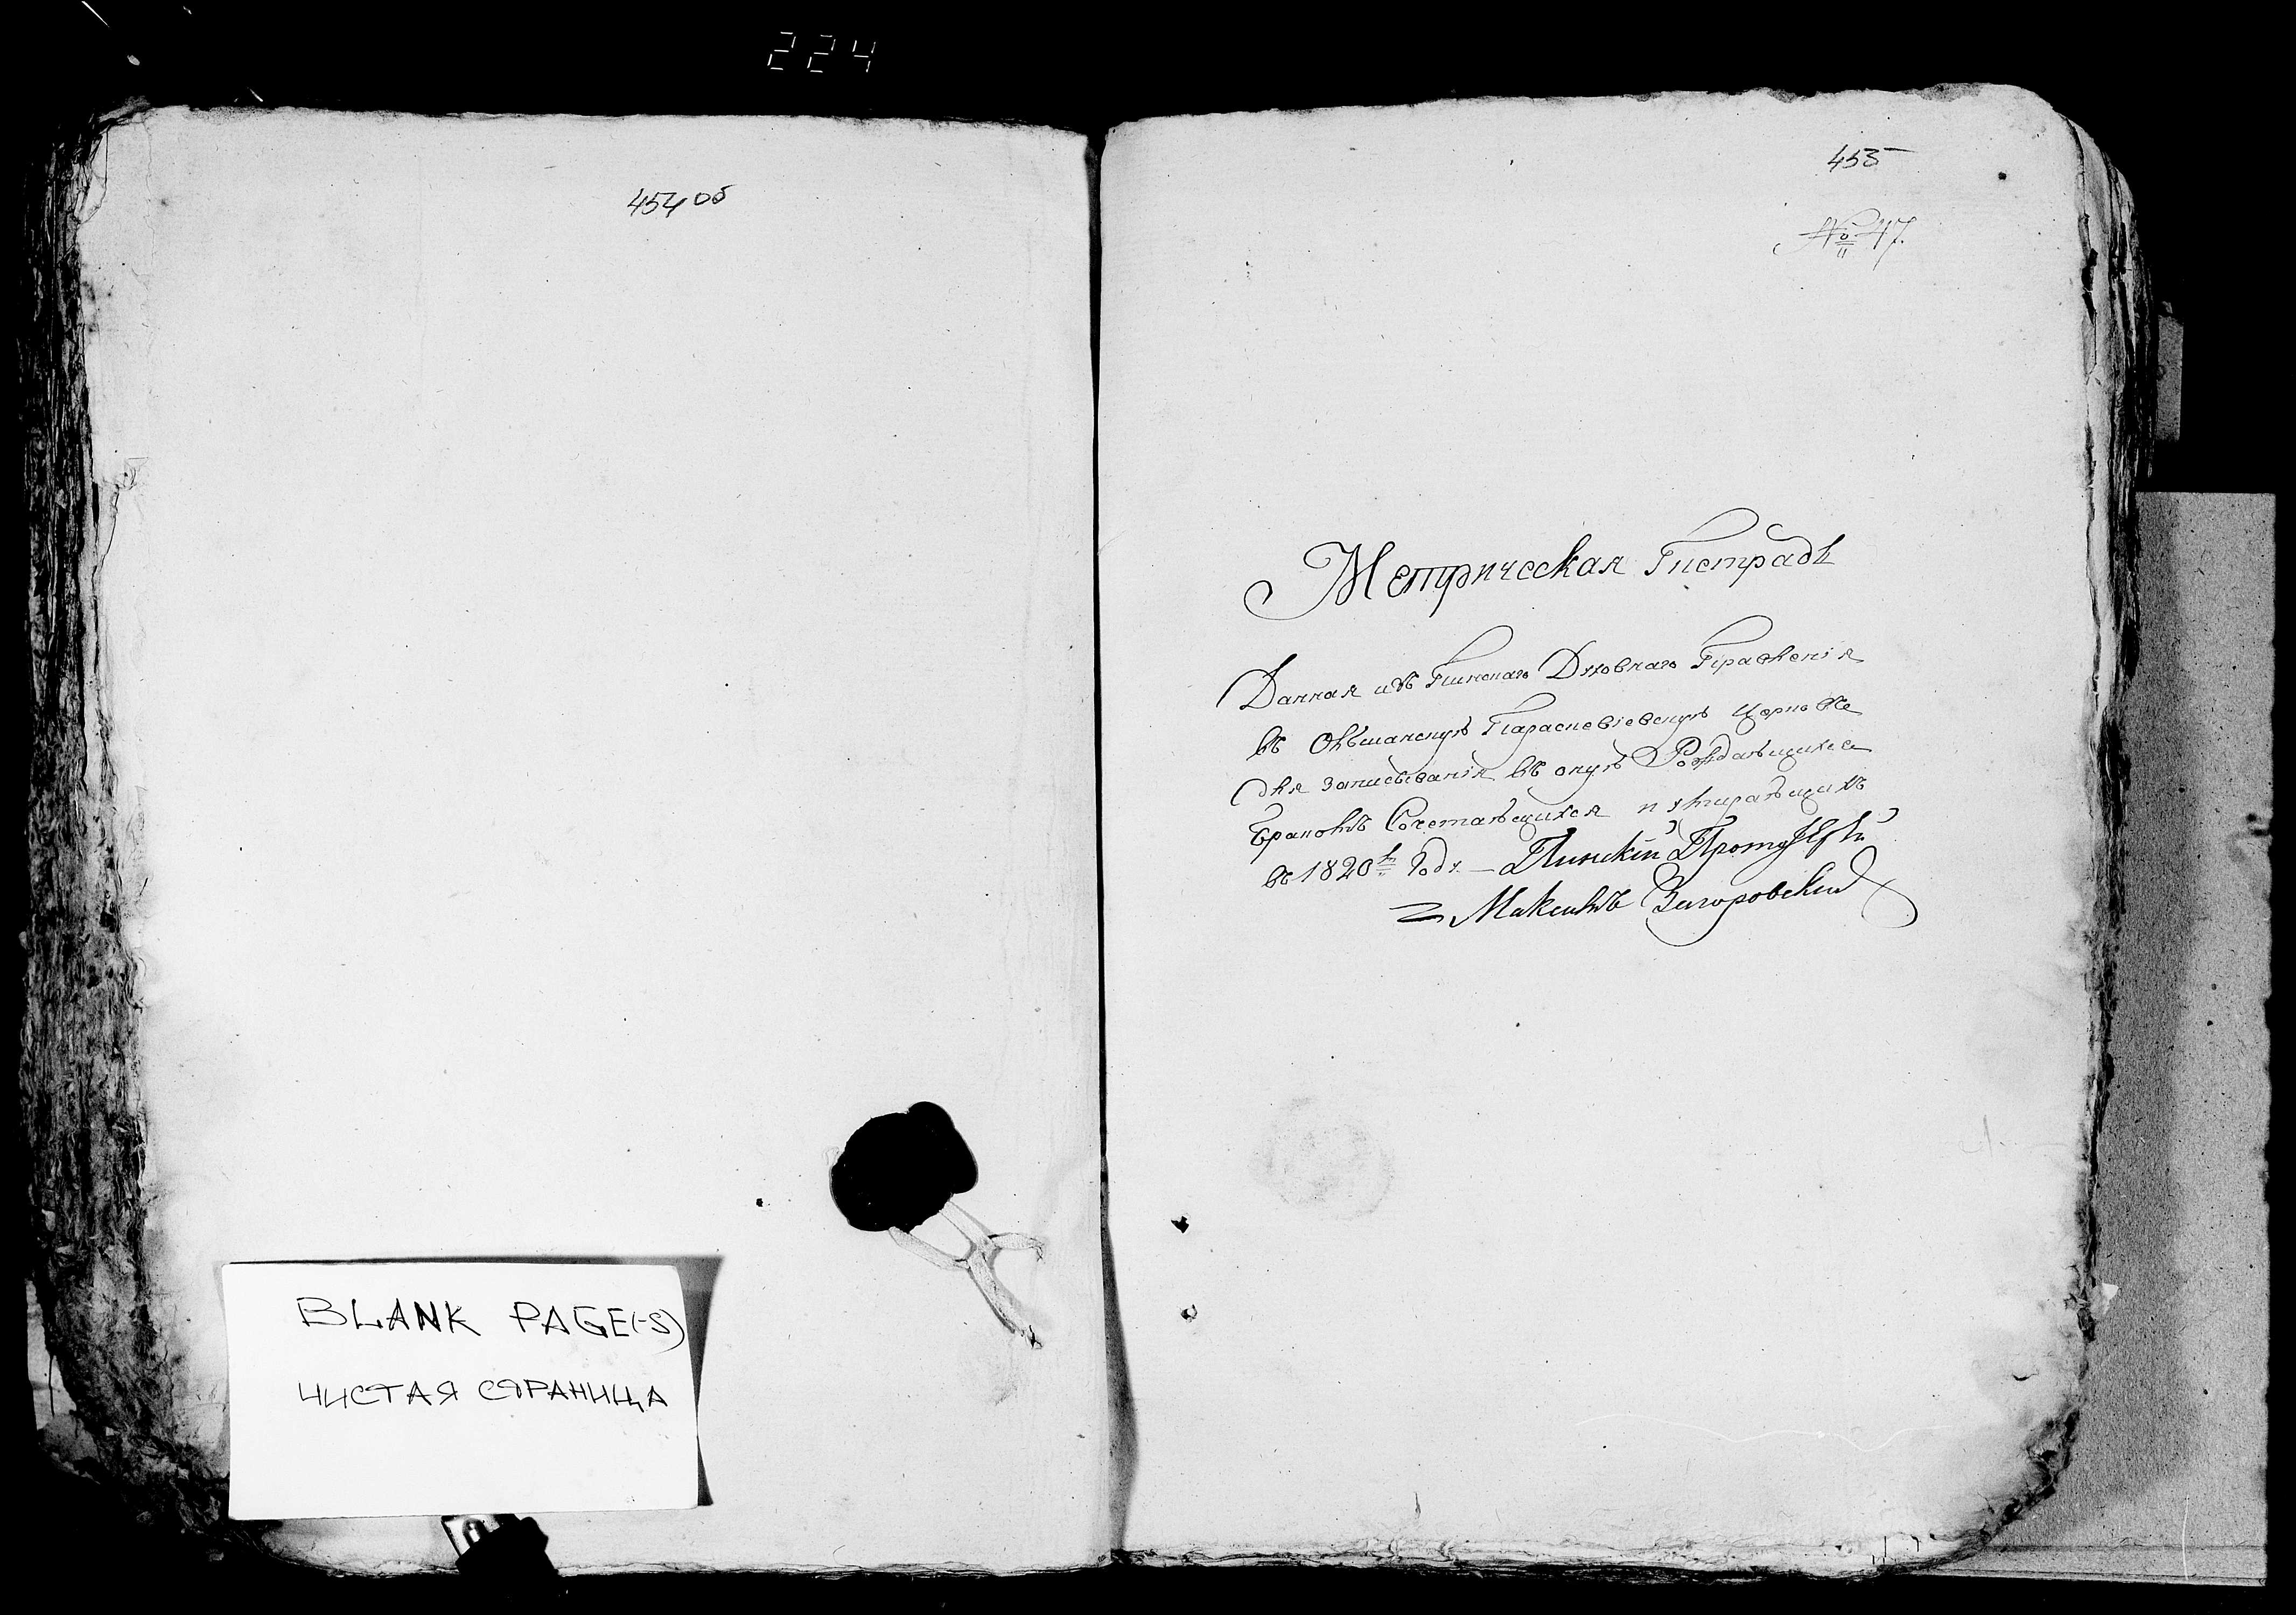 224
454 об
BLANK PAGE(-S)
ЧИСТАЯ СТРАНИЦА
455
№ 47.
Метрическая Тетрадь
Данная изъ Пинскаго Духовнаго Правленія
въ Ольшанскую Параскевіевскую Церковь
для записыванія въ оную Рождающихся
Браковъ Сочетающихся и умирающихъ
въ 1820м Годѣ — Пинскій Протоіерей
Максимъ Загоровскій